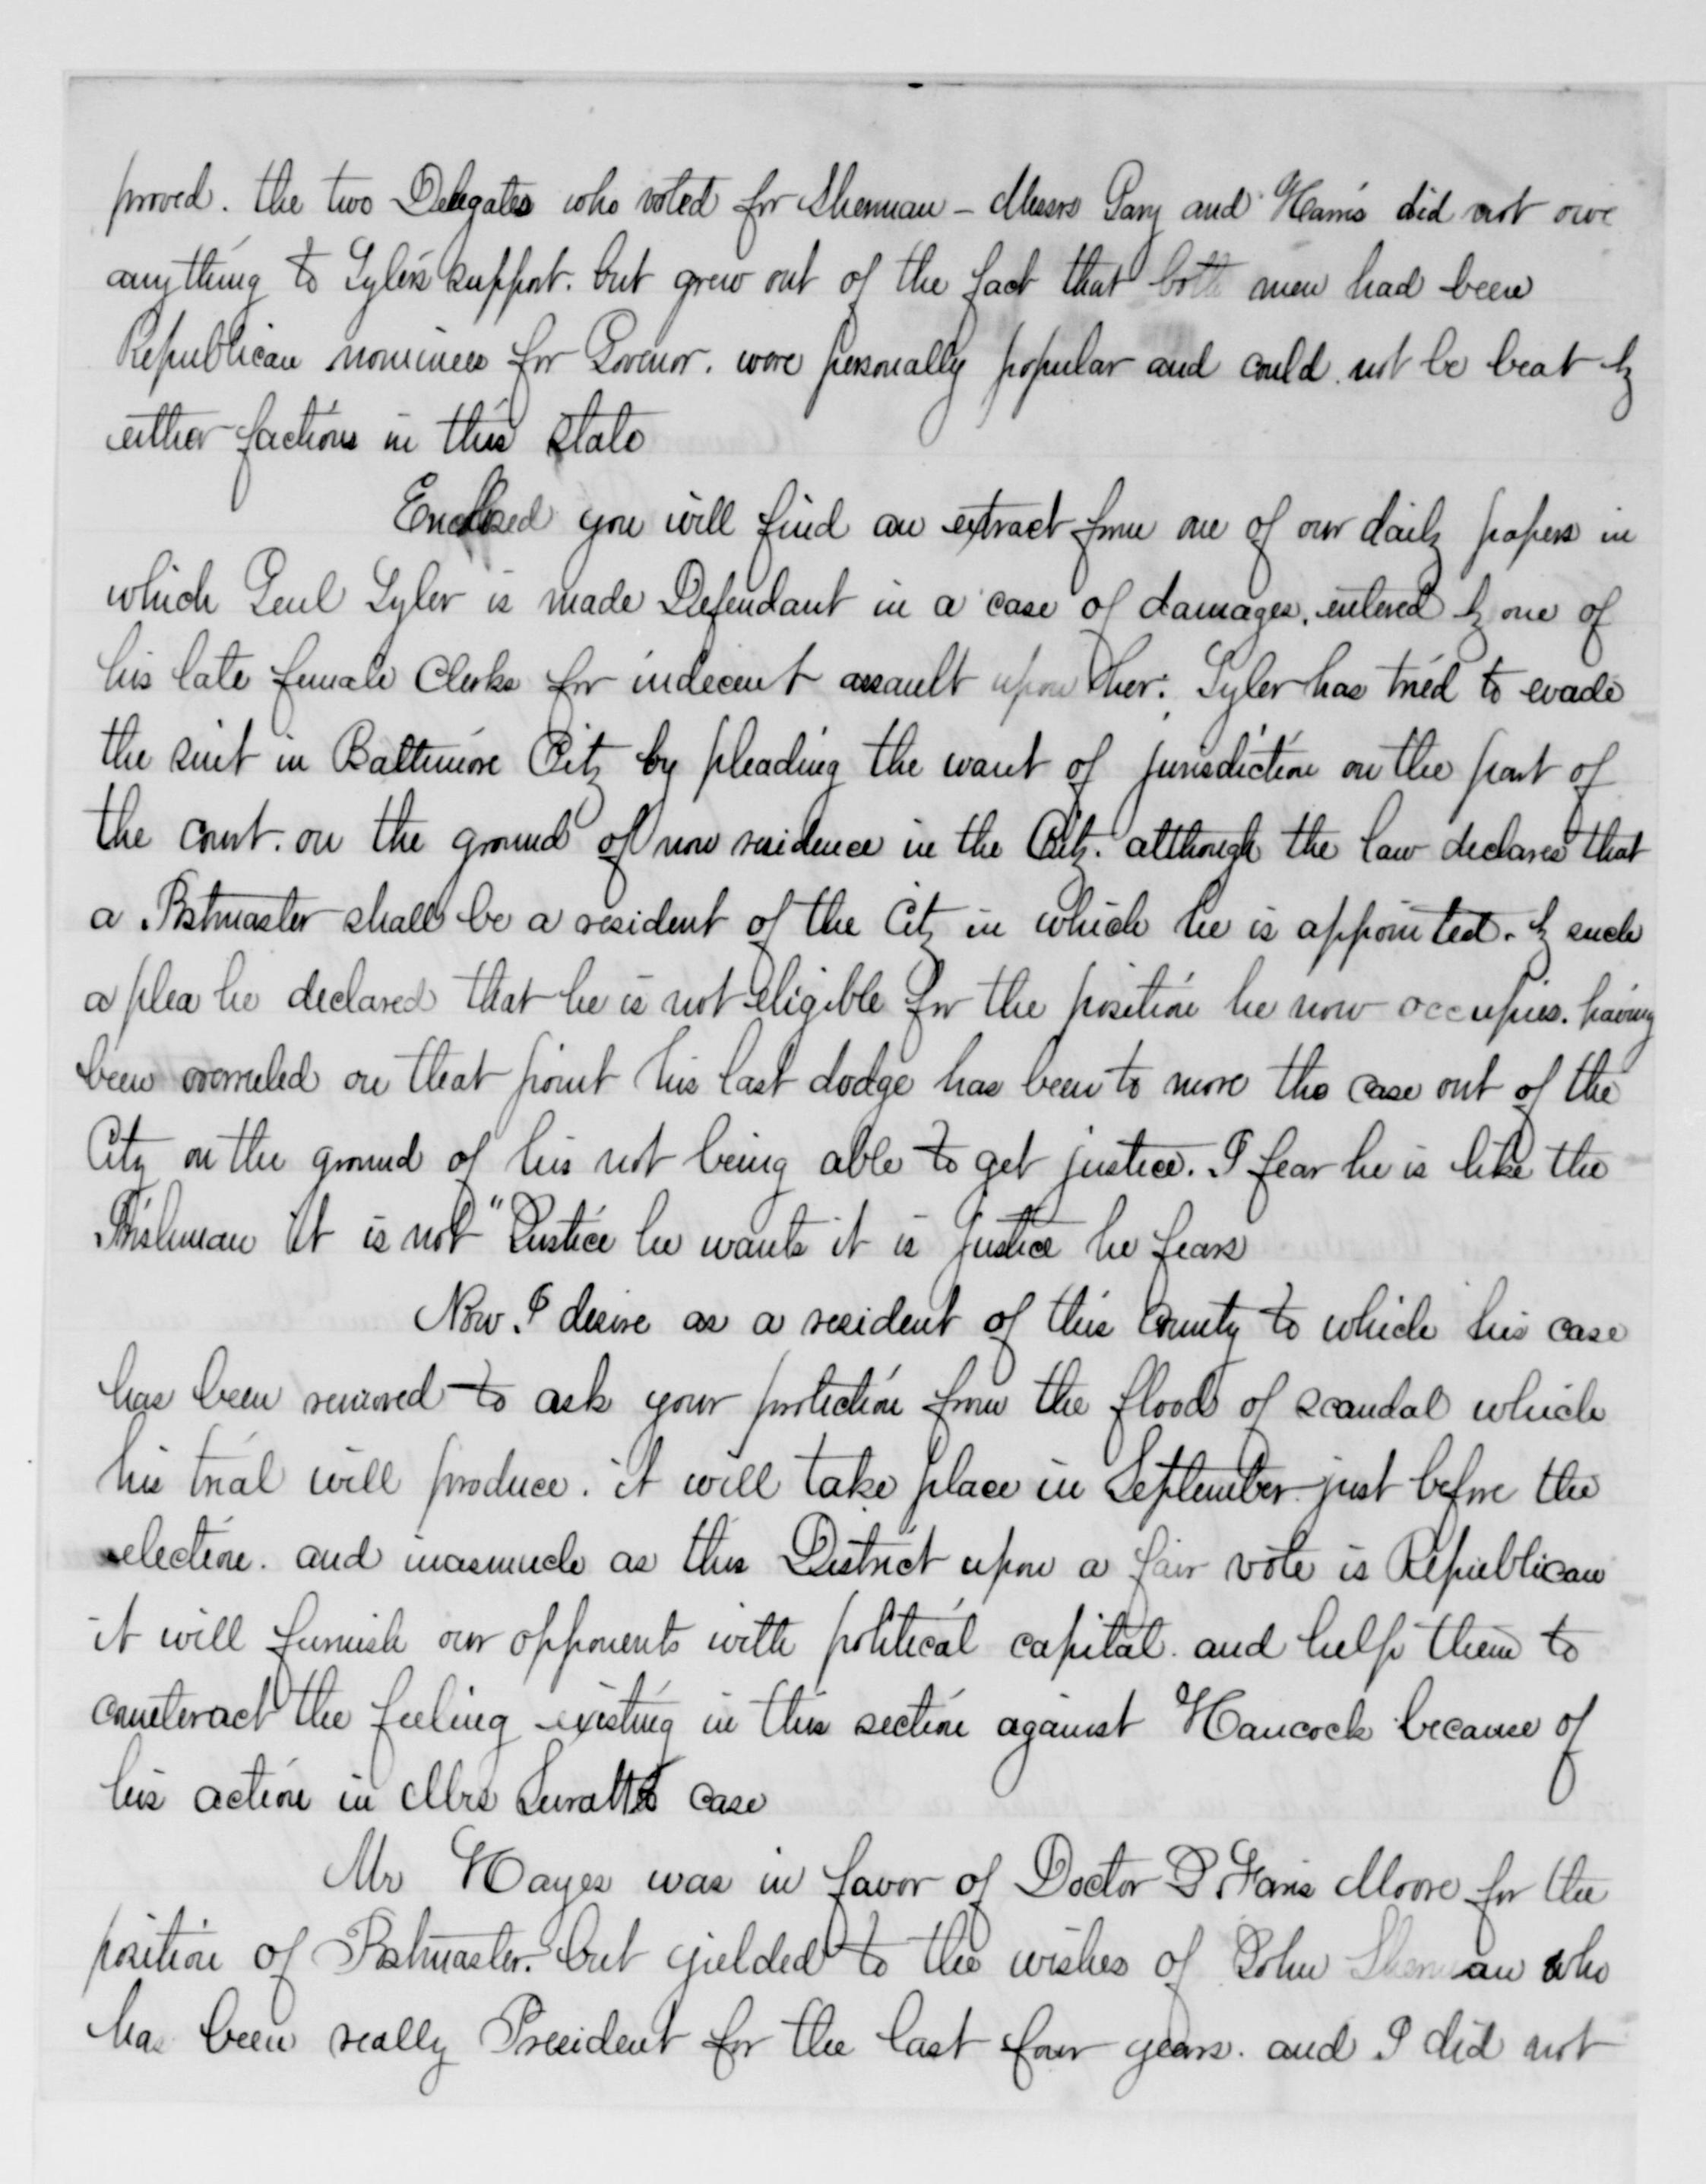 proved. the two Delegates who voted for Sherman - Messrs Gary and Harris did not owe
anything to Tyler's support. but grew out of the fact that both men had been
Republican nominees for Govenor. were personally popular and could not be beat by
either factions in this state
Enclosed you will find an extract from one of our daily papers in
which Genl Tyler is made Defendant in a case of damages. entered by one of
his late female Clerks for indecent assault upon her. Tyler has tried to evade
the suit in Baltimore City by pleading the want of jurisdiction on the part of
the court. on the ground of non residence in the City. although the law declares that
a Postmaster shall be a resident of the City in which he is appointed. by such
a plea he declared that he is not eligible for the position he now occupies. having
been overruled on that point his last dodge has been to move the case out of the
City on the ground of his not being able to get justice. I fear he is like the
Irishman it is not "Justice he wants it is justice he fears
Now. I desire as a resident of this County to which his case
has been removed to ask your protection from the flood of scandal which
his trial will produce. it will take place in September just before the
election. and inasmuch as this District upon a fair vote is Republican
it will furnish our opponents with political capital. and help them to
counteract the feeling existing in this section against Hancock because of
his action in Mrs Suratts case
Mr Hayes was in favor of Doctor Faris Moore for the
position of Postmaster. but yielded to the wishes of John Sherman who
has been really President for the last four years. and I did not